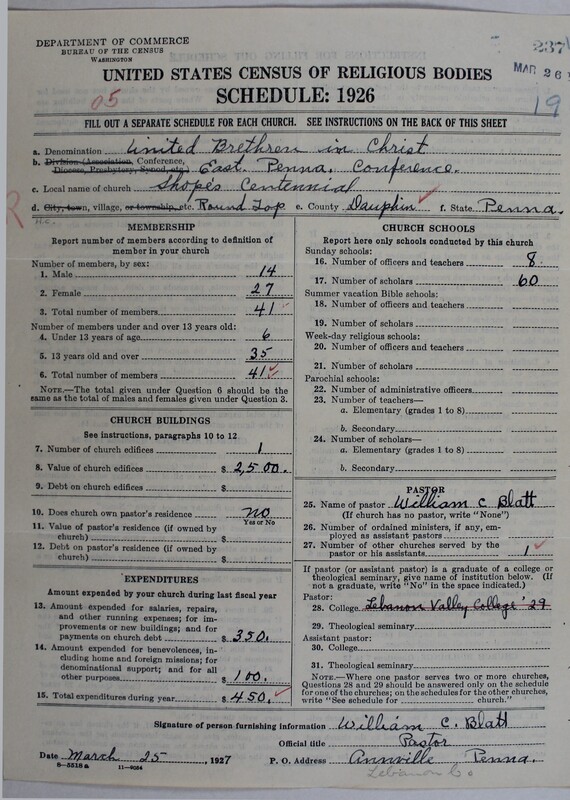 DEPARTMENT OF COMMERCE
BUREAU OF THE CENSUS
WASHINGTON
237
MAR 26
UNITED STATES CENSUS OF RELIGIOUS BODIES
SCHEDULE: 1926
05
19
FILL OUT A SEPARATE SCHEDULE FOR EACH CHURCH. SEE INSTRUCTIONS ON THE BACK OF THIS SHEET
a. Denomination United Brethren in Christ
b. Division (Association, Conference, Diocese, Presbytery, Synod, etc.) East Penna. Conference.
c. Local name of church Shope's Centennial
d. City, town, village, or township, etc. Round Top e. County Dauphin f. State Penna.
R
MEMBERSHIP
Report number of members according to definition of
member in your church
Number of members, by sex:
1. Male 14
2. Female 27
3. Total number of members 41
Number of members under and over 13 years old:
4. Under 13 years of age 6
5. 13 years old and over 35
6. Total number of members 41
NOTE.—The total given under Question 6 should be
same as the total of males and females given under Question 3.
CHURCH BUILDINGS
See instructions, paragraphs 10 to 12
7. Number of church edifices 1
8. Value of church edifices $ 2,500.
9. Debt on church edifices $
10. Does church own pastor's residence? no
Yes or No
11. Value of pastor's residence (if owned by
church) $
12. Debt on pastor's residence (if owned by
church) $
EXPENDITURES
Amount expended by your church during last fiscal year
13. Amount expended for salaries, repairs,
and other running expenses; for im-
provements or new buildings; and for
payments on church debt $ 350.
14. Amount expended for benevolences, in-
cluding home and foreign missions; for
denominational support; and for all
other purposes $ 100.
15. Total expenditures during year $ 450.
CHURCH SCHOOLS
Report here only schools conducted by this church
Sunday schools:
16. Number of officers and teachers 8
17. Number of scholars 60
Summer vacation Bible schools:
18. Number of officers and teachers
19. Number of scholars
Week-day religious schools:
20. Number of officers and teachers
21. Number of scholars
Parochial schools:
22. Number of administrative officers
23. Number of teachers—
a. Elementary (grades 1 to 8)
b. Secondary
24. Number of scholars—
a. Elementary (grades 1 to 8)
b. Secondary
PASTOR
25. Name of pastor William C Blatt
(If church has no pastor, write "None")
26. Number of ordained ministers, if any, em-
ployed as assistant pastors
27. Number of other churches served by the
pastor or his assistants 1
If pastor (or assistant pastor) is a graduate of a college or
theological seminary, give name of institution below. (If
not a graduate, write "No" in the space indicated.)
Pastor:
28. College Lebanon Valley College '29
29. Theological seminary
Assistant pastor:
30. College
31. Theological seminary
NOTE.—Where one pastor serves two or more churches,
Questions 28 and 29 should be answered only on the schedule
for one of the churches; on the schedules for the other churches,
write "See schedule for church."
Signature of person furnishing information William C. Blatt
Official title Pastor
Date March 25, 1927 P. O. Address Annville Penna.
8-5518 a 11-9034
Lebanon Co